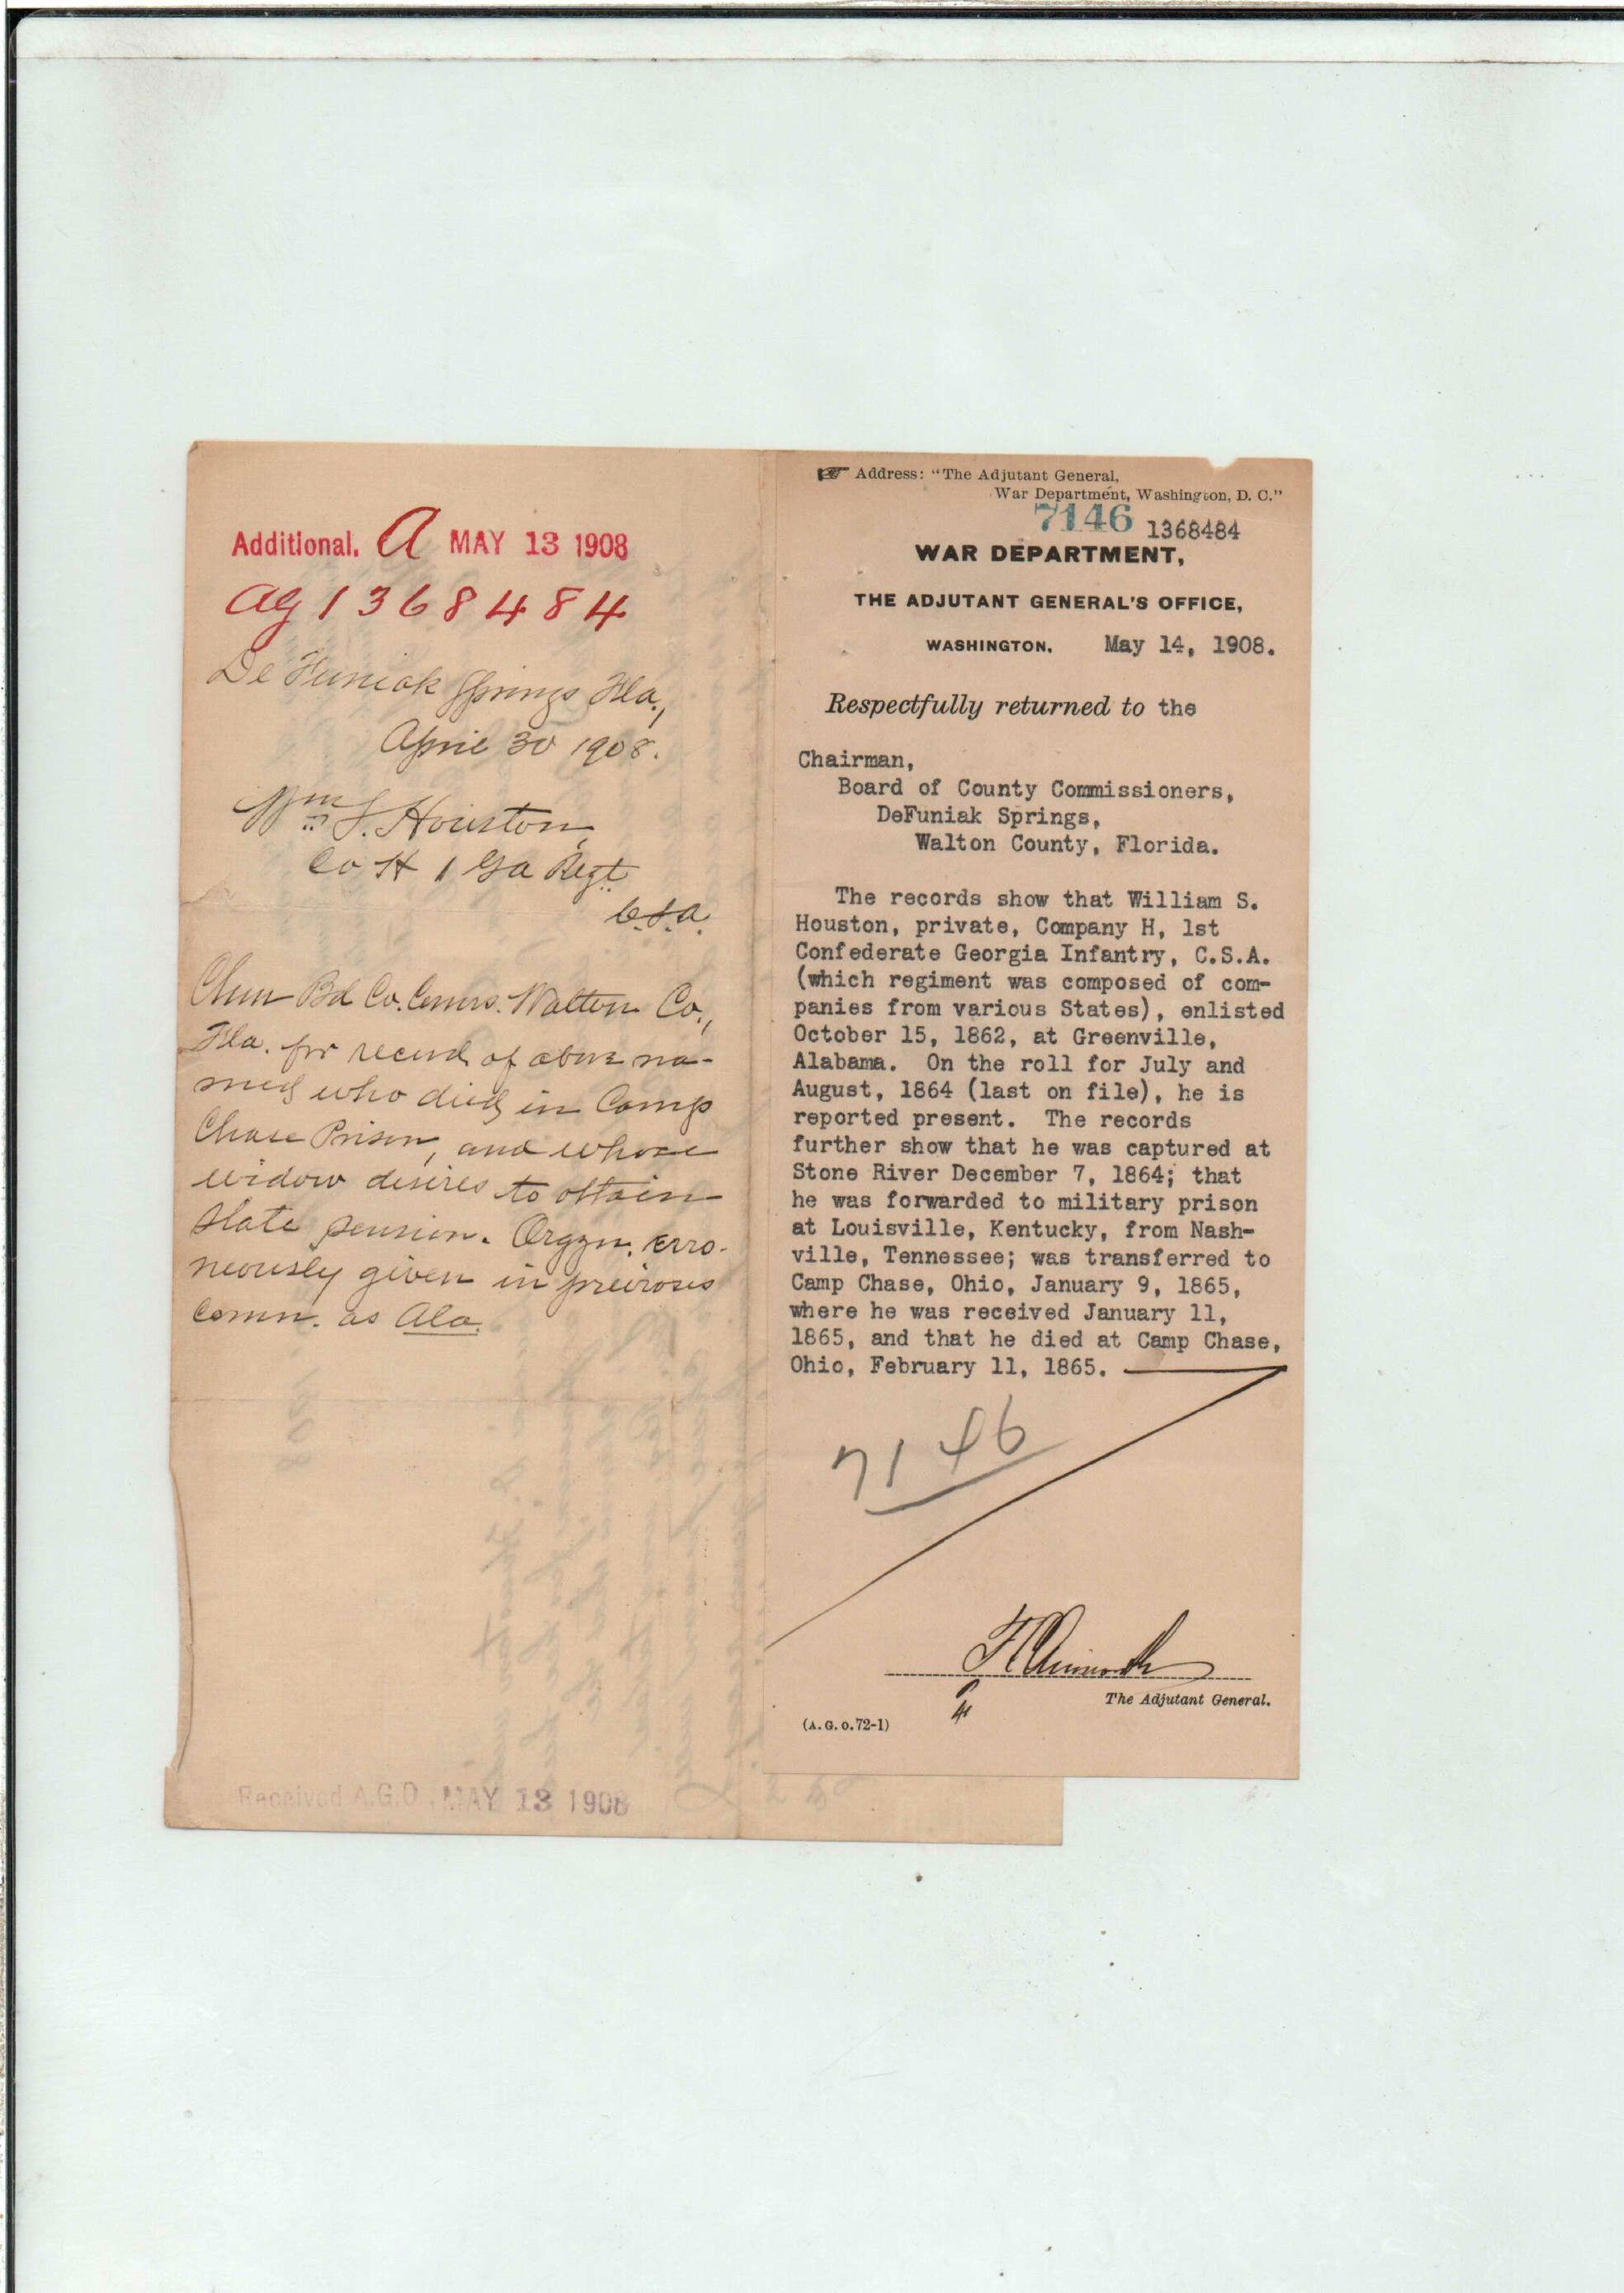 Additional. A MAY 13 1908
AG 1368484
De Funiak Springs Fla.,
April 30 1908.
Wm S. Houston,
Co H 1 Ga Regt.
C.S.A.
Chm Bd Co. Comrs. Walton Co.,
Fla. for record of above na-
med who died in Camp
Chase Prison, and whose
widow desires to obtain
state pension. Orgzn. erro-
neously given in previous
comn. as Ala.
Received A.G.O. MAY 13 1908
Address: "The Adjutant General,
War Department, Washington, D. C."
7146 1368484
WAR DEPARTMENT,
THE ADJUTANT GENERAL'S OFFICE,
WASHINGTON, May 14, 1908.
Respectfully returned to the
Chairman,
Board of County Commissioners,
DeFuniak Springs,
Walton County, Florida.
The records show that William S.
Houston, private, Company H, 1st
Confederate Georgia Infantry, C.S.A.
(which regiment was composed of com-
panies from various States), enlisted
October 15, 1862, at Greenville,
Alabama. On the roll for July and
August, 1864 (last on file), he is
reported present. The records
further show that he was captured at
Stone River December 7, 1864; that
he was forwarded to military prison
at Louisville, Kentucky, from Nash-
ville, Tennessee; was transferred to
Camp Chase, Ohio, January 9, 1865,
where he was received January 11,
1865, and that he died at Camp Chase,
Ohio, February 11, 1865.
7146
F C Ainsworth
The Adjutant General.
(A. G. O. 72-1)